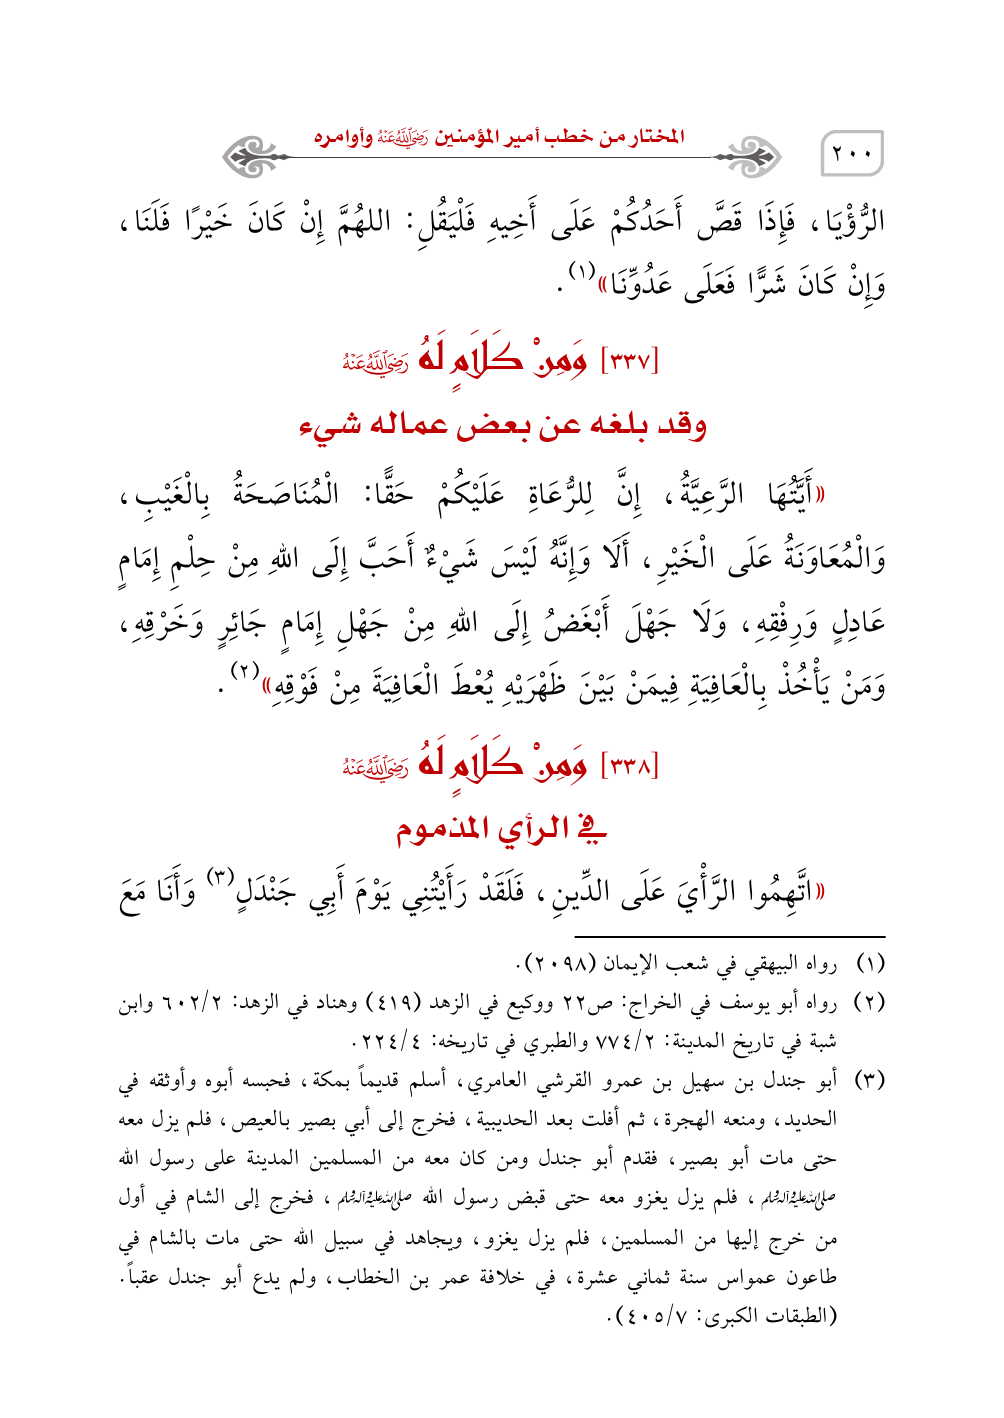 ٢٠٠
المختار من خطب أمير المؤمنين رَضِيَ اللَّهُ عَنْهُ وأوامره
الرُّؤْيَا، فَإِذَا قَصَّ أَحَدُكُمْ عَلَى أَخِيهِ فَلْيَقُلِ: اللهُمَّ إِنْ كَانَ خَيْرًا فَلَنَا،
وَإِنْ كَانَ شَرًّا فَعَلَى عَدُوِّنَا»(١).
[٣٣٧] وَمِنْ كَلَامٍ لَهُ رَضِيَ اللَّهُ عَنْهُ
وقد بلغه عن بعض عماله شيء
«أَيَّتُهَا الرَّعِيَّةُ، إِنَّ لِلرُّعَاةِ عَلَيْكُمْ حَقًّا: الْمُنَاصَحَةُ بِالْغَيْبِ،
وَالْمُعَاوَنَةُ عَلَى الْخَيْرِ، أَلَا وَإِنَّهُ لَيْسَ شَيْءٌ أَحَبَّ إِلَى اللهِ مِنْ حِلْمِ إِمَامٍ
عَادِلٍ وَرِفْقِهِ، وَلَا جَهْلَ أَبْغَضُ إِلَى اللهِ مِنْ جَهْلِ إِمَامٍ جَائِرٍ وَخَرْقِهِ،
وَمَنْ يَأْخُذْ بِالْعَافِيَةِ فِيمَنْ بَيْنَ ظَهْرَيْهِ يُعْطَ الْعَافِيَةَ مِنْ فَوْقِهِ»(٢).
[٣٣٨] وَمِنْ كَلَامٍ لَهُ رَضِيَ اللَّهُ عَنْهُ
في الرأي المذموم
«اتَّهِمُوا الرَّأْيَ عَلَى الدِّينِ، فَلَقَدْ رَأَيْتُنِي يَوْمَ أَبِي جَنْدَلٍ(٣) وَأَنَا مَعَ
(١) رواه البيهقي في شعب الإيمان (٢٠٩٨).
(٢) رواه أبو يوسف في الخراج: ص٢٢ ووكيع في الزهد (٤١٩) وهناد في الزهد: ٦٠٢/٢ وابن
شبة في تاريخ المدينة: ٧٧٤/٢ والطبري في تاريخه: ٢٢٤/٤.
(٣) أبو جندل بن سهيل بن عمرو القرشي العامري، أسلم قديماً بمكة، فحبسه أبوه وأوثقه في
الحديد، ومنعه الهجرة، ثم أفلت بعد الحديبية، فخرج إلى أبي بصير بالعيص، فلم يزل معه
حتى مات أبو بصير، فقدم أبو جندل ومن كان معه من المسلمين المدينة على رسول الله
صلى الله عليه وآله وسلم، فلم يزل يغزو معه حتى قبض رسول الله صلى الله عليه وآله وسلم، فخرج إلى الشام في أول
من خرج إليها من المسلمين، فلم يزل يغزو، ويجاهد في سبيل الله حتى مات بالشام في
طاعون عمواس سنة ثماني عشرة، في خلافة عمر بن الخطاب، ولم يدع أبو جندل عقباً.
(الطبقات الكبرى: ٤٠٥/٧).